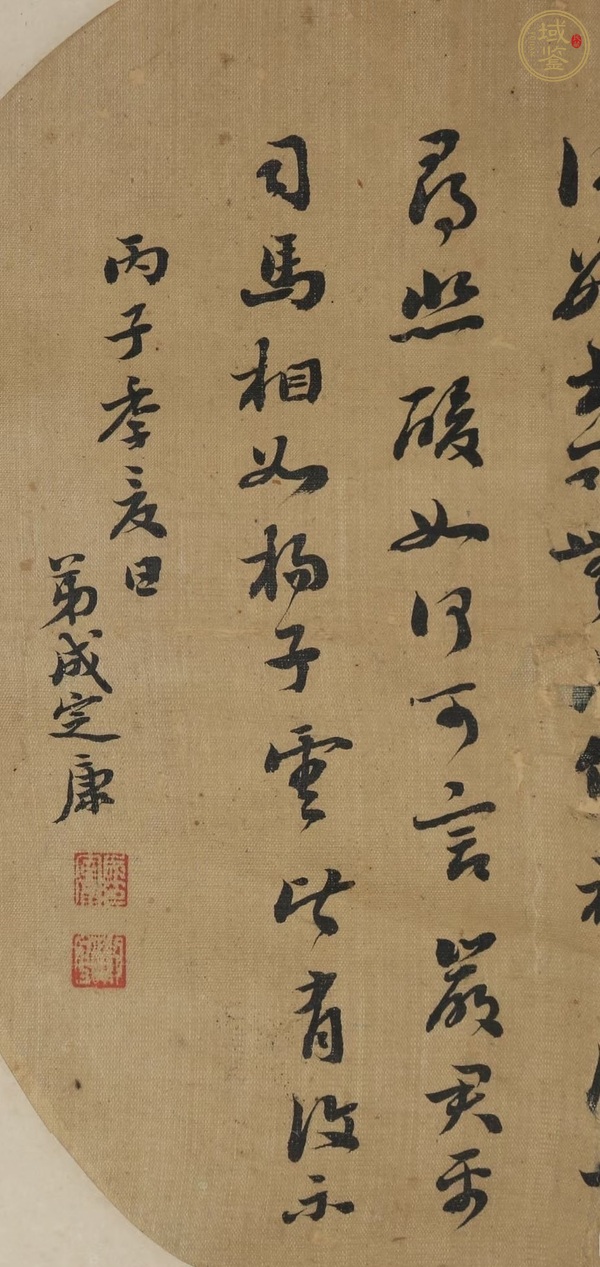 尋悲酸如何可言嚴君平
司馬相如楊子雲皆有後不
丙子季夏日
弟成定康
域鉴